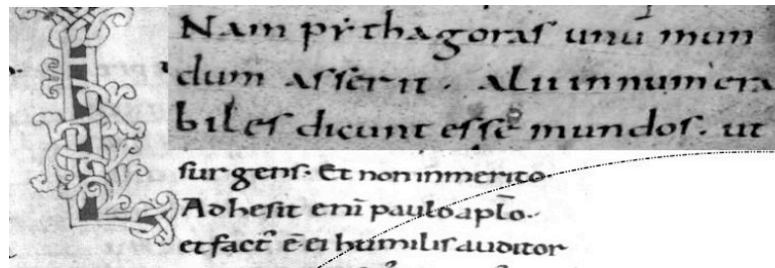 L
Nam pẏthagoras unū mun
dum asserit . Alii innumera
biles dicunt esse mundos. ut
surgens. Et non inmerito.
Adhesit enī paulo apl̄o.
et factꝰ ē ei humilis auditor